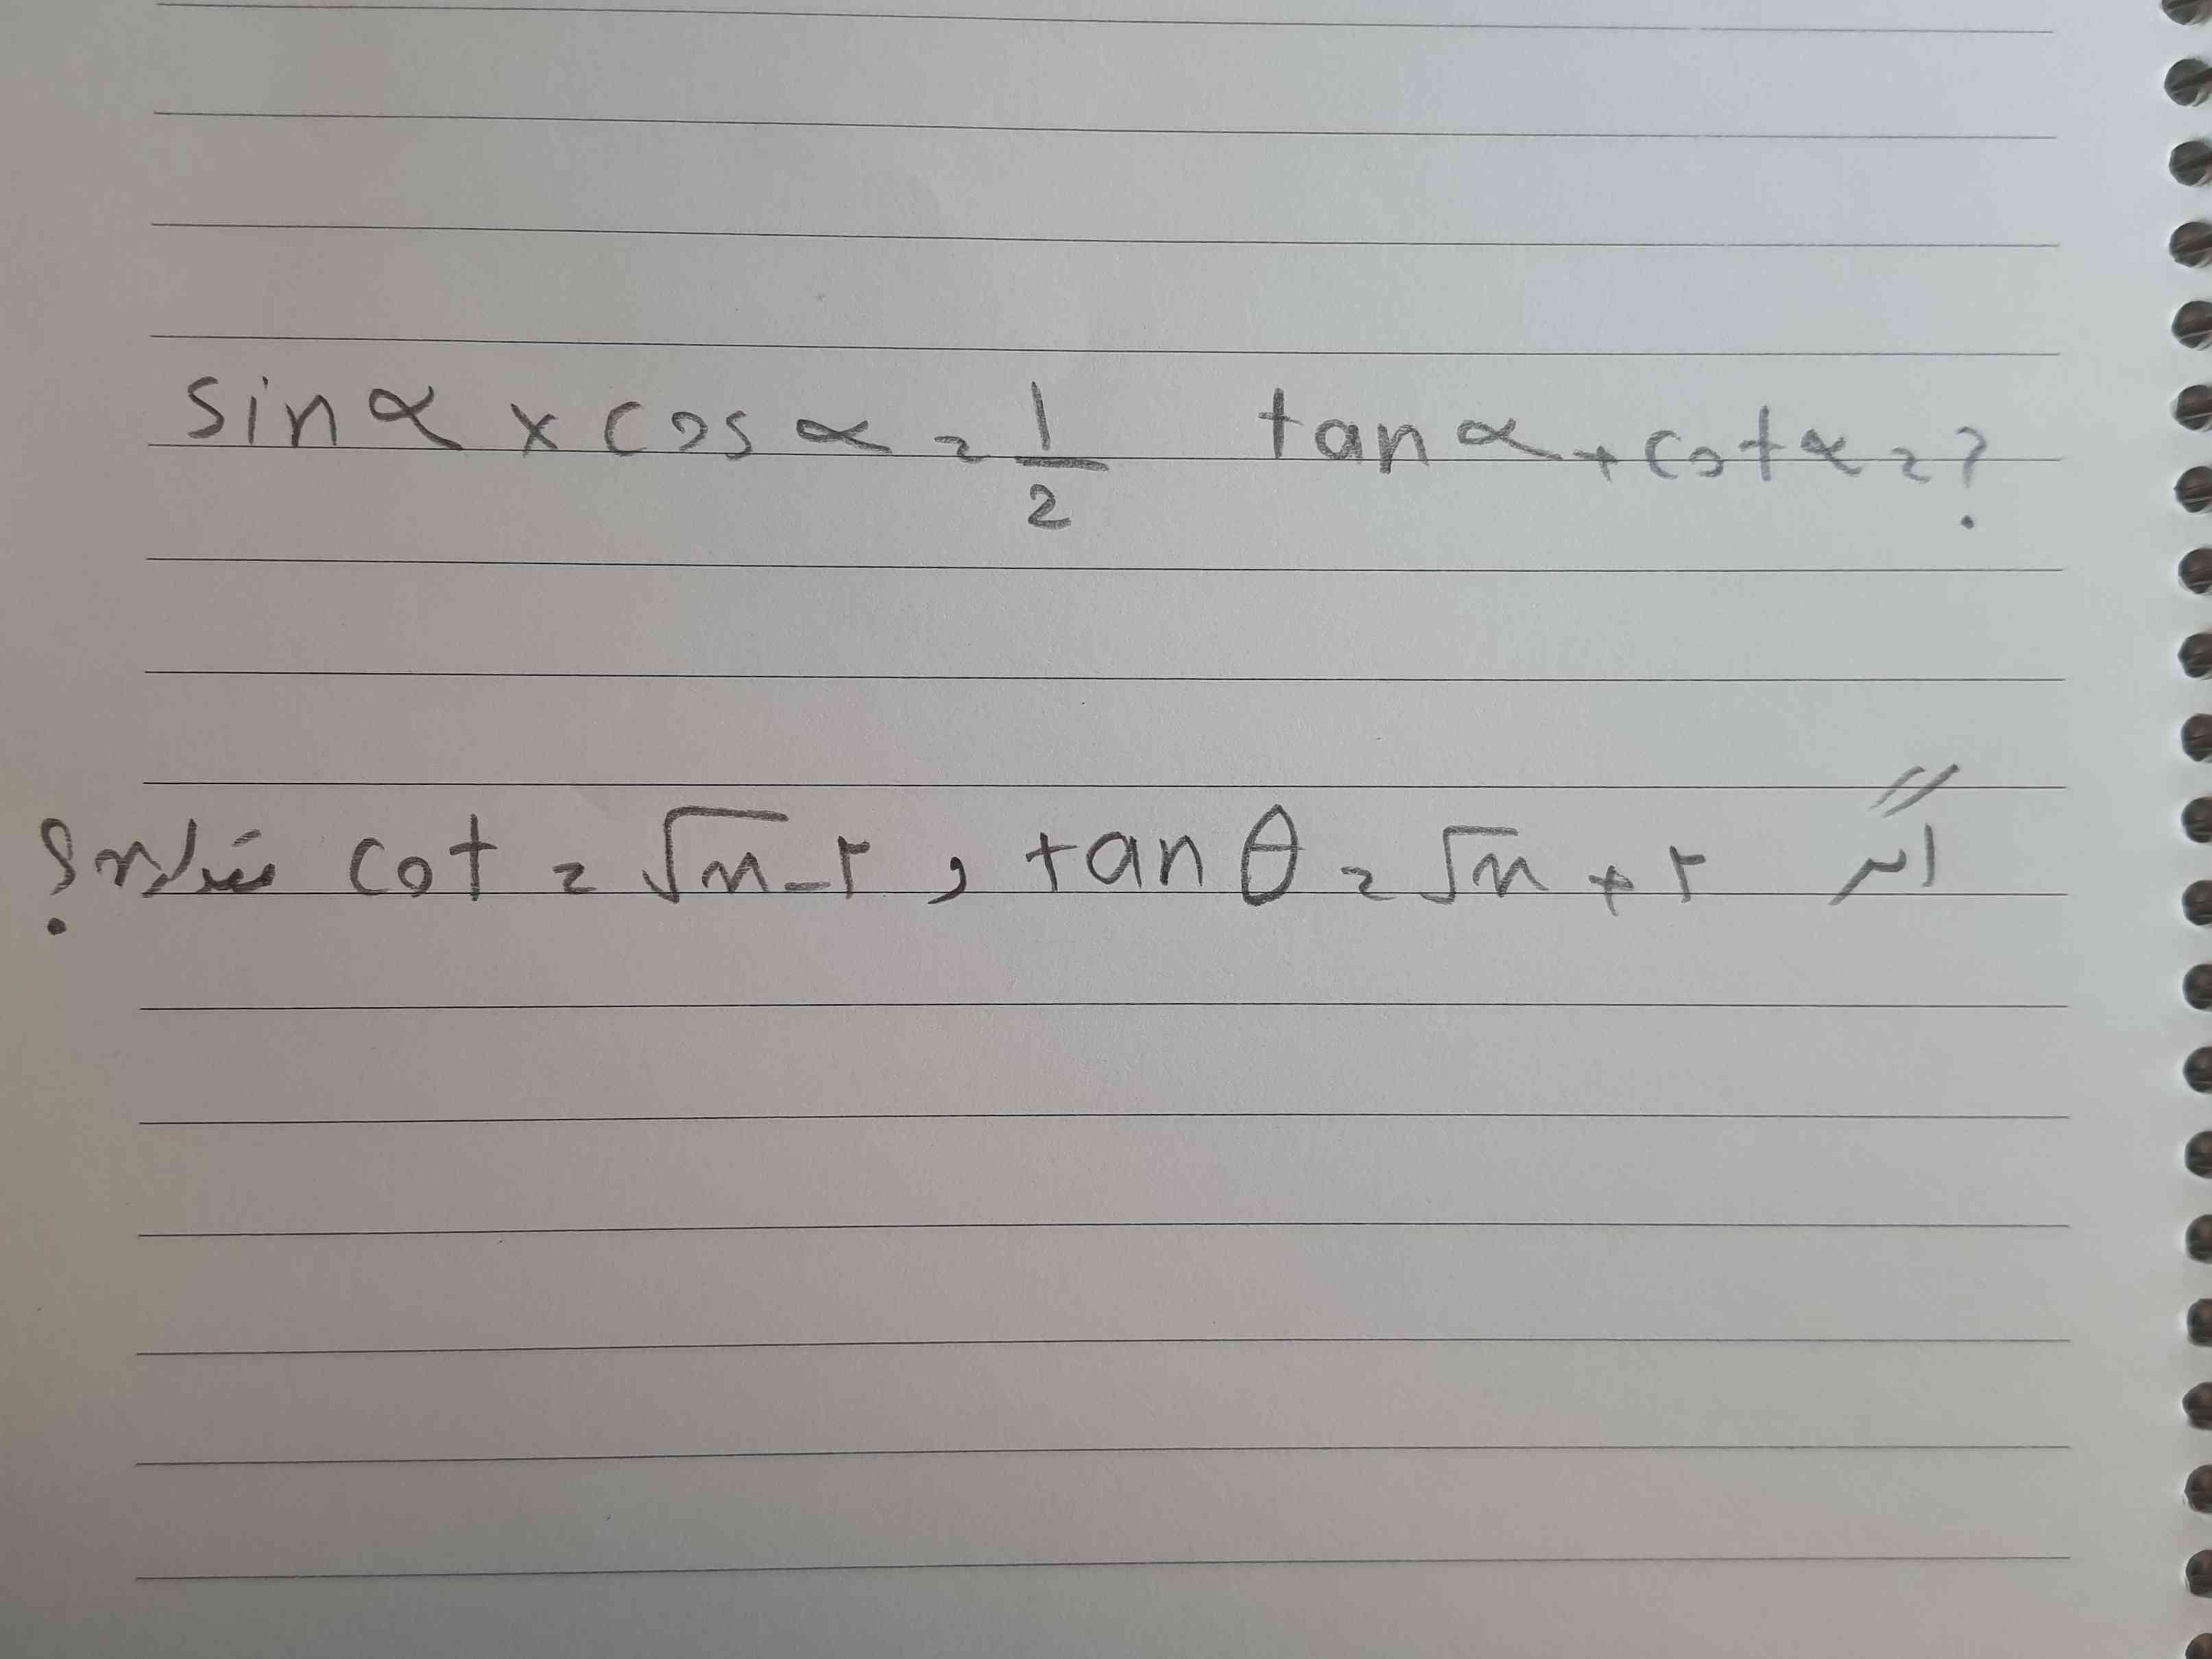 sinα × cosα = 1/2 tanα + cotα = ?
اگر tanθ = √m + ۲ , cot = √m - ۲ مقدار m؟